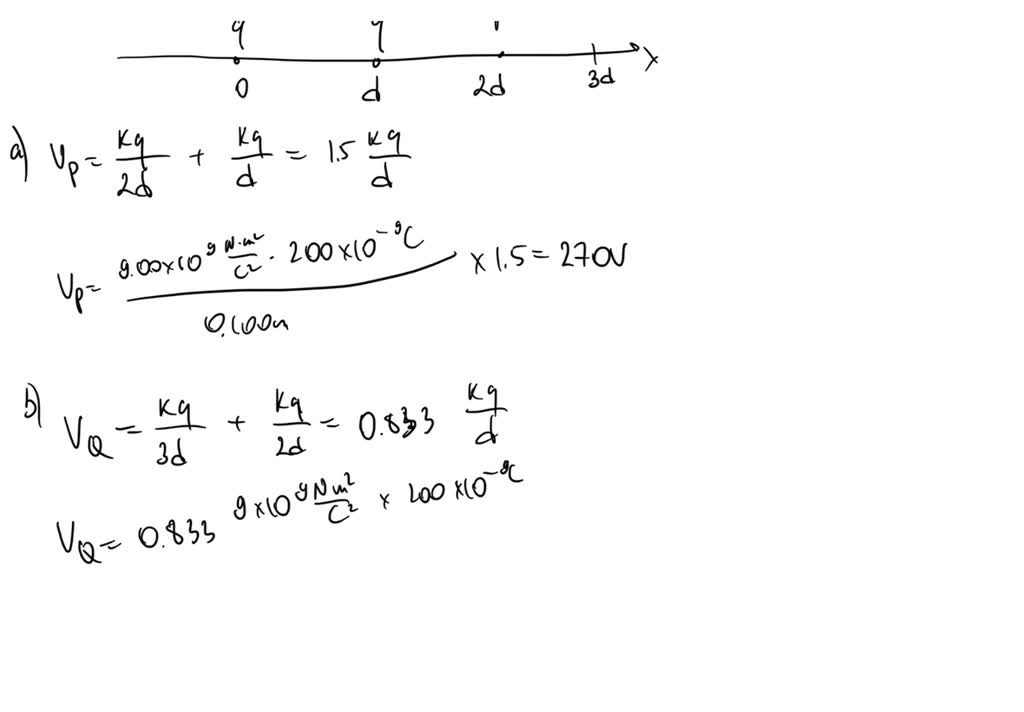 q q
0 d 2d 3d x
a) V_P = Kq/2d + Kq/d = 1.5 Kq/d
V_P = (9.00x10^9 N·m²/C² · 2.00x10^-9 C) / 0.100m x 1.5 = 270V
b) V_Q = Kq/3d + Kq/2d = 0.833 Kq/d
V_Q = 0.833 9x10^9 Nm²/C² x 2.00x10^-9 C